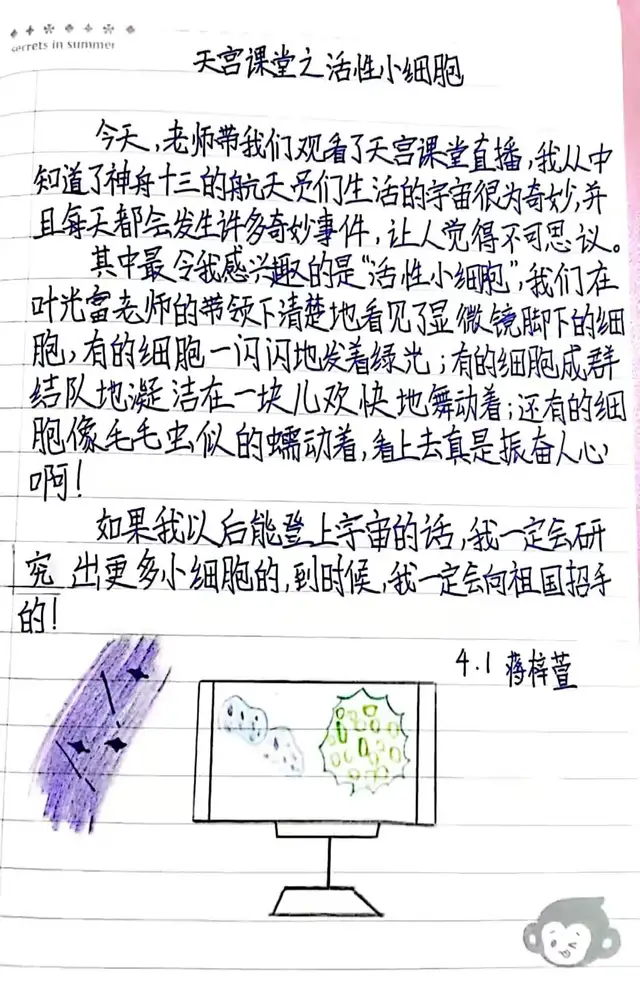 secrets in summer
天宫课堂之活性小细胞
今天,老师带我们观看了天宫课堂直播,我从中
知道了神舟十三的航天员们生活的宇宙很为奇妙,并
且每天都会发生许多奇妙事件,让人觉得不可思议。
其中最令我感兴趣的是“活性小细胞”,我们在
叶光富老师的带领下清楚地看见了显微镜脚下的细
胞,有的细胞一闪闪地发着绿光;有的细胞成群
结队地凝洁在一块儿欢快地舞动着;还有的细
胞像毛毛虫似的蠕动着,看上去真是振奋人心
啊!
如果我以后能登上宇宙的话,我一定会研
究出更多小细胞的,到时候,我一定会向祖国招手
的!
4.1 蒋梓萱